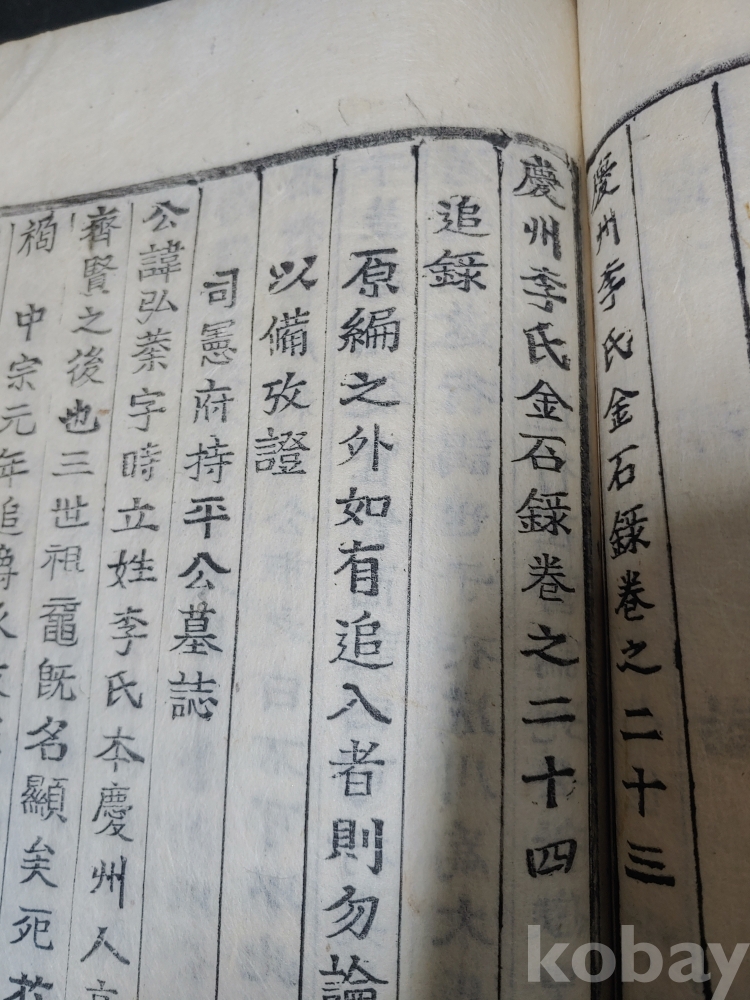 慶州李氏金石錄卷之二十三
慶州李氏金石錄卷之二十四
追錄
原編之外如有追入者則勿論
以備攷證
司憲府持平公墓誌
公諱弘業字時立姓李氏本慶州人
齊賢之後也三世祖黿旣名顯矣死於
禍 中宗元年追
kobay